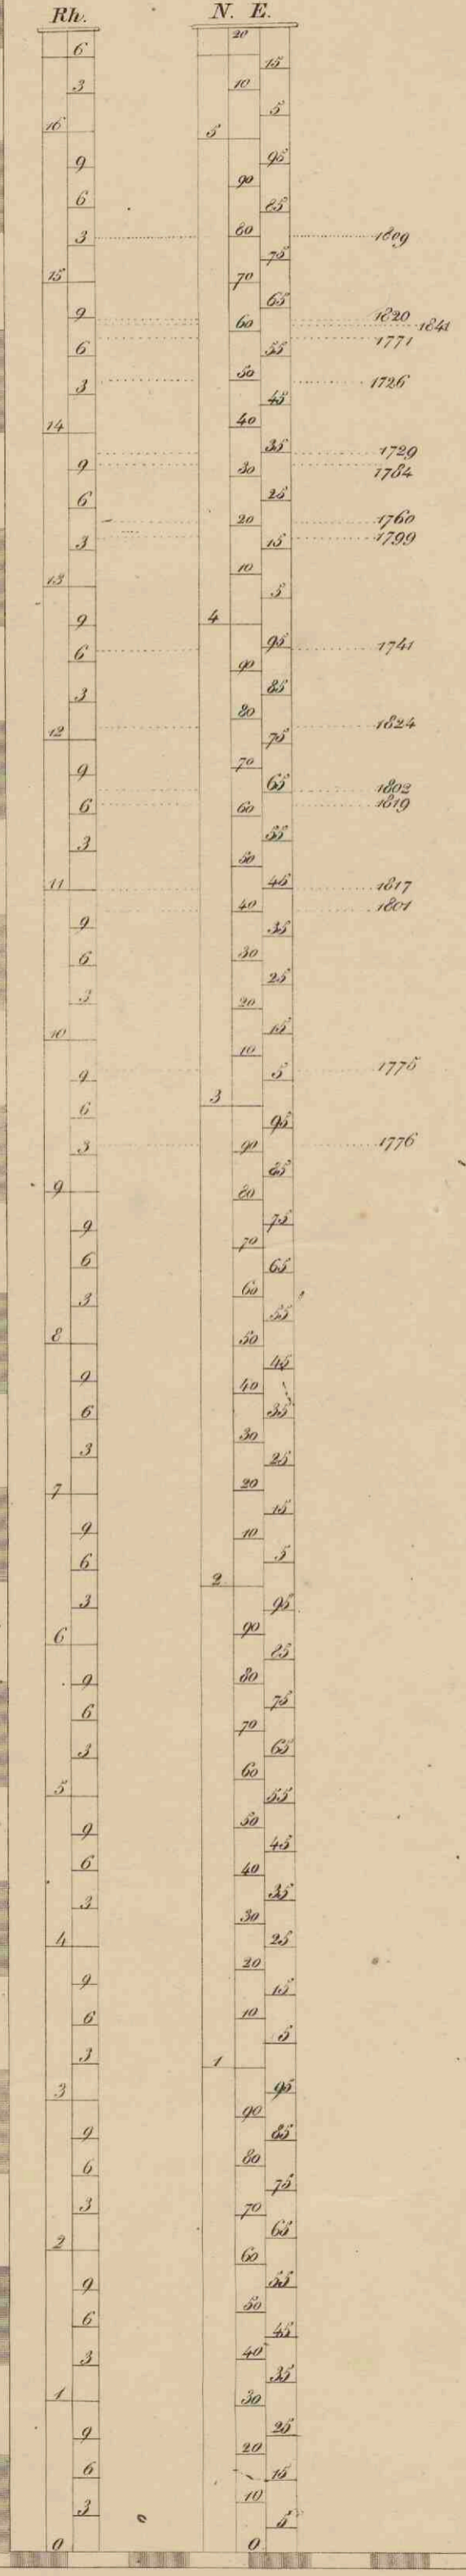 Rh.
6
3
16
9
6
3
15
9
6
3
14
9
6
3
13
9
6
3
12
9
6
3
11
9
6
3
10
9
6
3
9
9
6
3
8
9
6
3
7
9
6
3
6
9
6
3
5
9
6
3
4
9
6
3
3
9
6
3
2
9
6
3
1
9
6
3
0
N. E.
20
15
10
5
5
95
90
85
80
75
70
65
60
55
50
45
40
35
30
25
20
15
10
5
4
95
90
85
80
75
70
65
60
55
50
45
40
35
30
25
20
15
10
5
3
95
90
85
80
75
70
65
60
55
50
45
40
35
30
25
20
15
10
5
2
95
90
85
80
75
70
65
60
55
50
45
40
35
30
25
20
15
10
5
1
95
90
85
80
75
70
65
60
55
50
45
40
35
30
25
20
15
10
5
0
1809
1820
1841
1771
1726
1729
1784
1760
1799
1741
1824
1802
1819
1817
1801
1775
1776